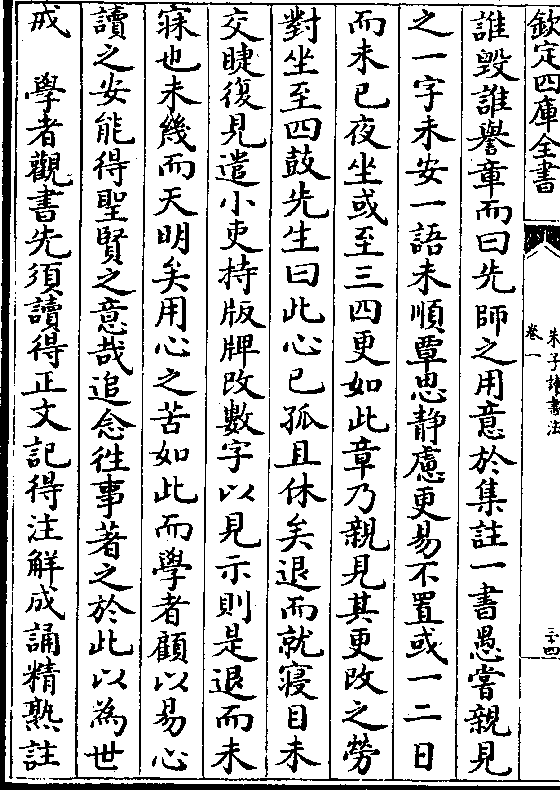 欽定四庫全書
朱子讀書法
卷一
三十四
誰毀誰譽章而曰先師之用意於集註一書愚嘗親見
之一字未安一語未順覃思静慮更易不置或一二日
而未已夜坐或至三四更如此章乃親見其更改之勞
對坐至四鼓先生曰此心已孤且休矣退而就寢目未
交睫復見遣小吏持版牌改數字以見示則是退而未
寐也未幾而天明矣用心之苦如此而學者顧以易心
讀之安能得聖賢之意哉追念往事著之於此以為世
戒　學者觀書先須讀得正文記得注解成誦精熟註